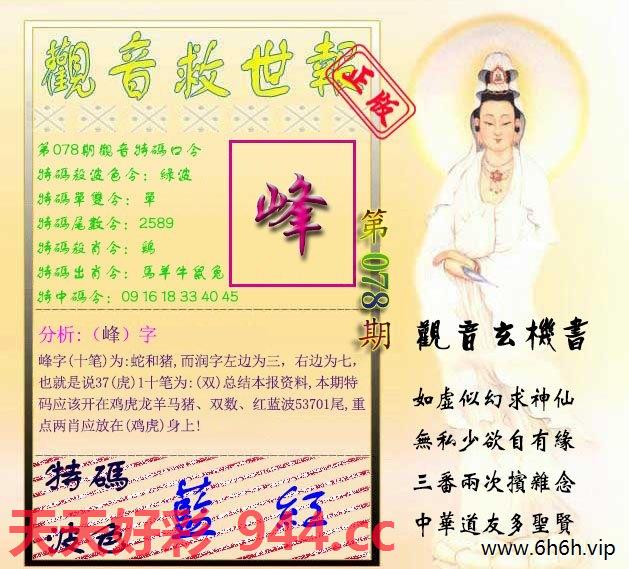 觀音救世報
正版
第078期觀音特碼口令
特碼殺波色令：綠波
特碼單雙令：單
特碼尾數令：2589
特碼殺肖令：鷄
特碼出肖令：馬羊牛鼠兔
特中碼令：09 16 18 33 40 45
峰
第078期
分析:（峰）字
峰字(十笔)为:蛇和猪,而润字左边为三，右边为七，
也就是说37(虎)1十笔为:(双)总结本报资料,本期特
码应该开在鸡虎龙羊马猪、双数、红蓝波53701尾,重
点两肖应放在(鸡虎)身上!
特碼
波色
藍 紅
天天好彩 944.cc
觀音玄機書
如虛似幻求神仙
無私少欲自有緣
三番兩次擯雜念
中華道友多聖賢
www.6h6h.vip